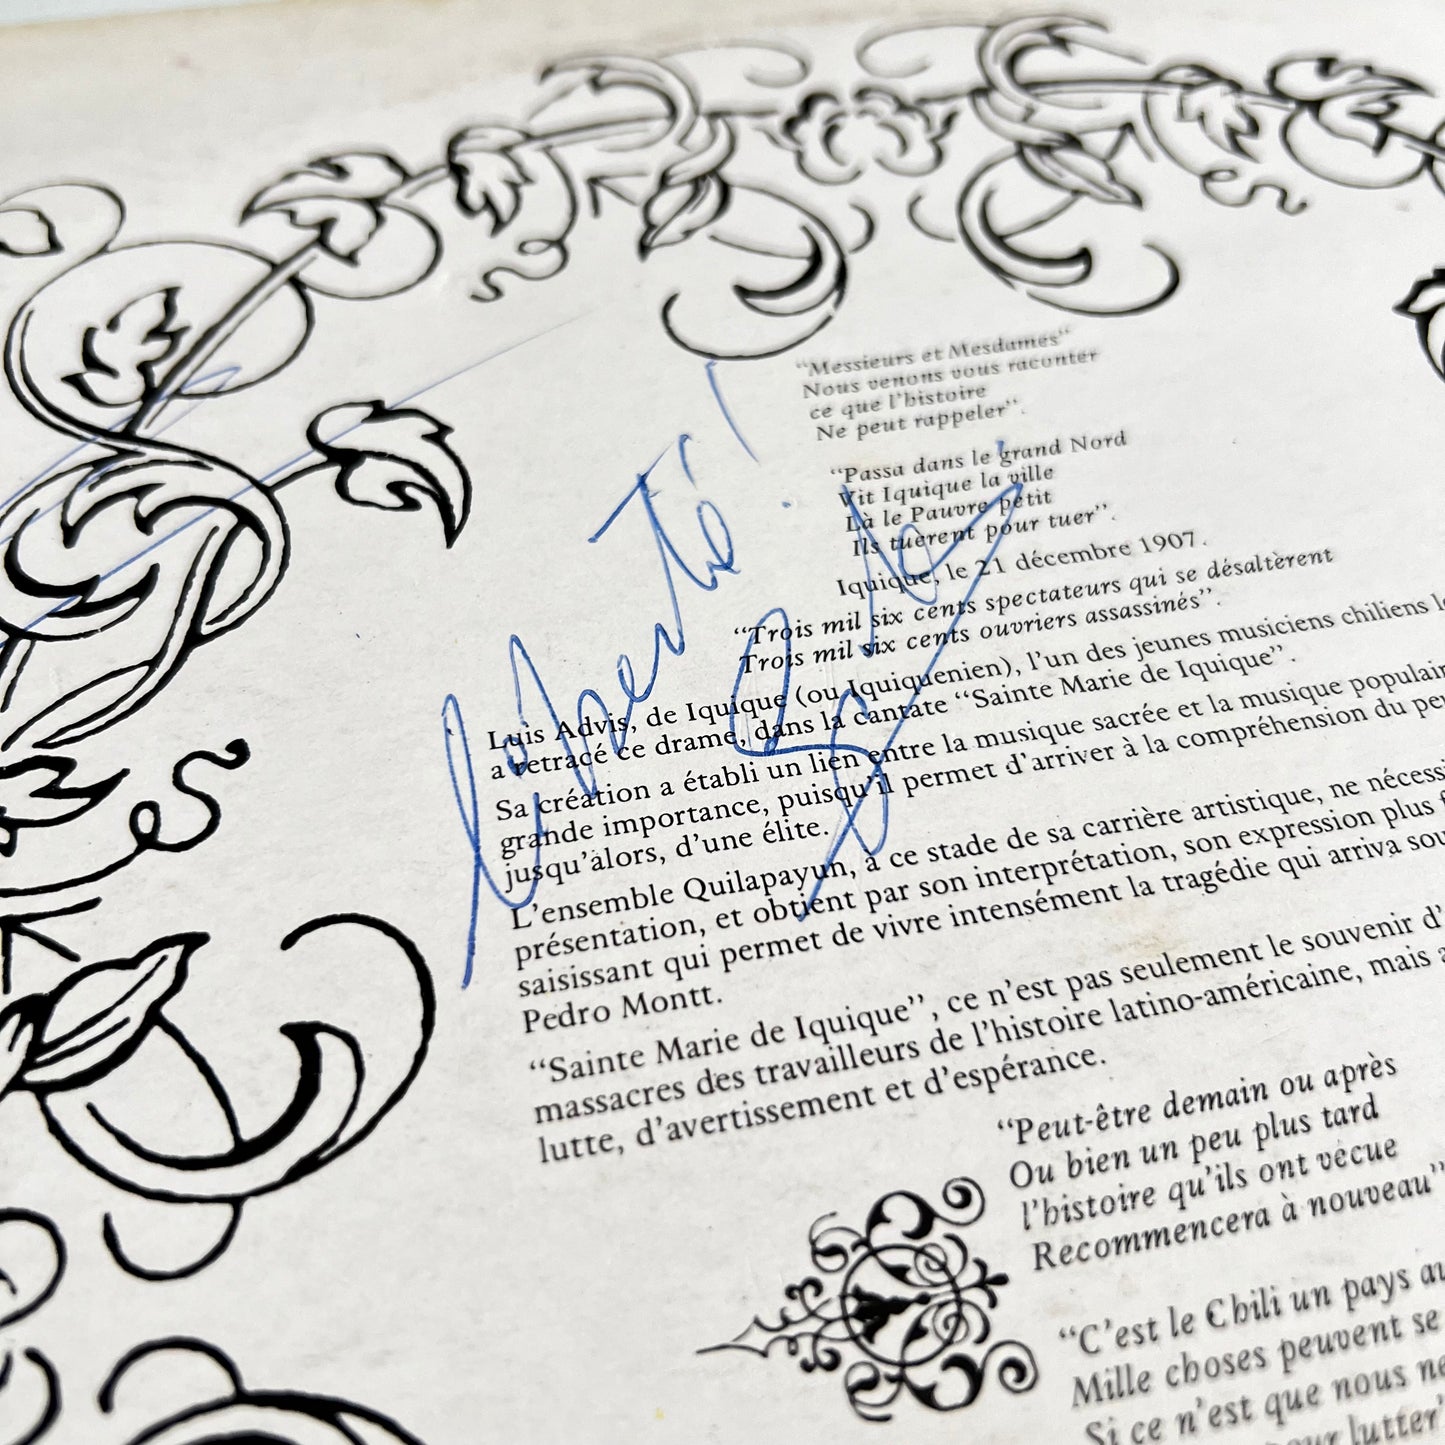 “Messieurs et Mesdames“
Nous venons vous raconter
ce que l’histoire
Ne peut rappeler”.
“Passa dans le grand Nord
Vit Iquique la ville
Là le Pauvre petit
Ils tuèrent pour tuer”.
Iquique, le 21 décembre 1907.
“Trois mil six cents spectateurs qui se désaltèrent
Trois mil six cents ouvriers assassinés”.
Luis Advis, de Iquique (ou Iquiquenien), l’un des jeunes musiciens chiliens
a retracé ce drame, dans la cantate “Sainte Marie de Iquique”.
Sa création a établi un lien entre la musique sacrée et la musique
grande importance, puisqu’il permet d’arriver à la compréhension du
jusqu’alors, d’une élite.
L’ensemble Quilapayun, à ce stade de sa carrière artistique, ne
présentation, et obtient par son interprétation, son expression plus
saisissant qui permet de vivre intensément la tragédie qui arriva
Pedro Montt.
“Sainte Marie de Iquique”, ce n’est pas seulement le souvenir
massacres des travailleurs de l’histoire latino-américaine, mais
lutte, d’avertissement et d’espérance.
“Peut-être demain ou après
Ou bien un peu plus tard
l’histoire qu’ils ont vécue
Recommencera à nouveau”
“C’est le Chili un pays
Mille choses peuvent se
Si ce n’est que nous
lutter”
liberté!